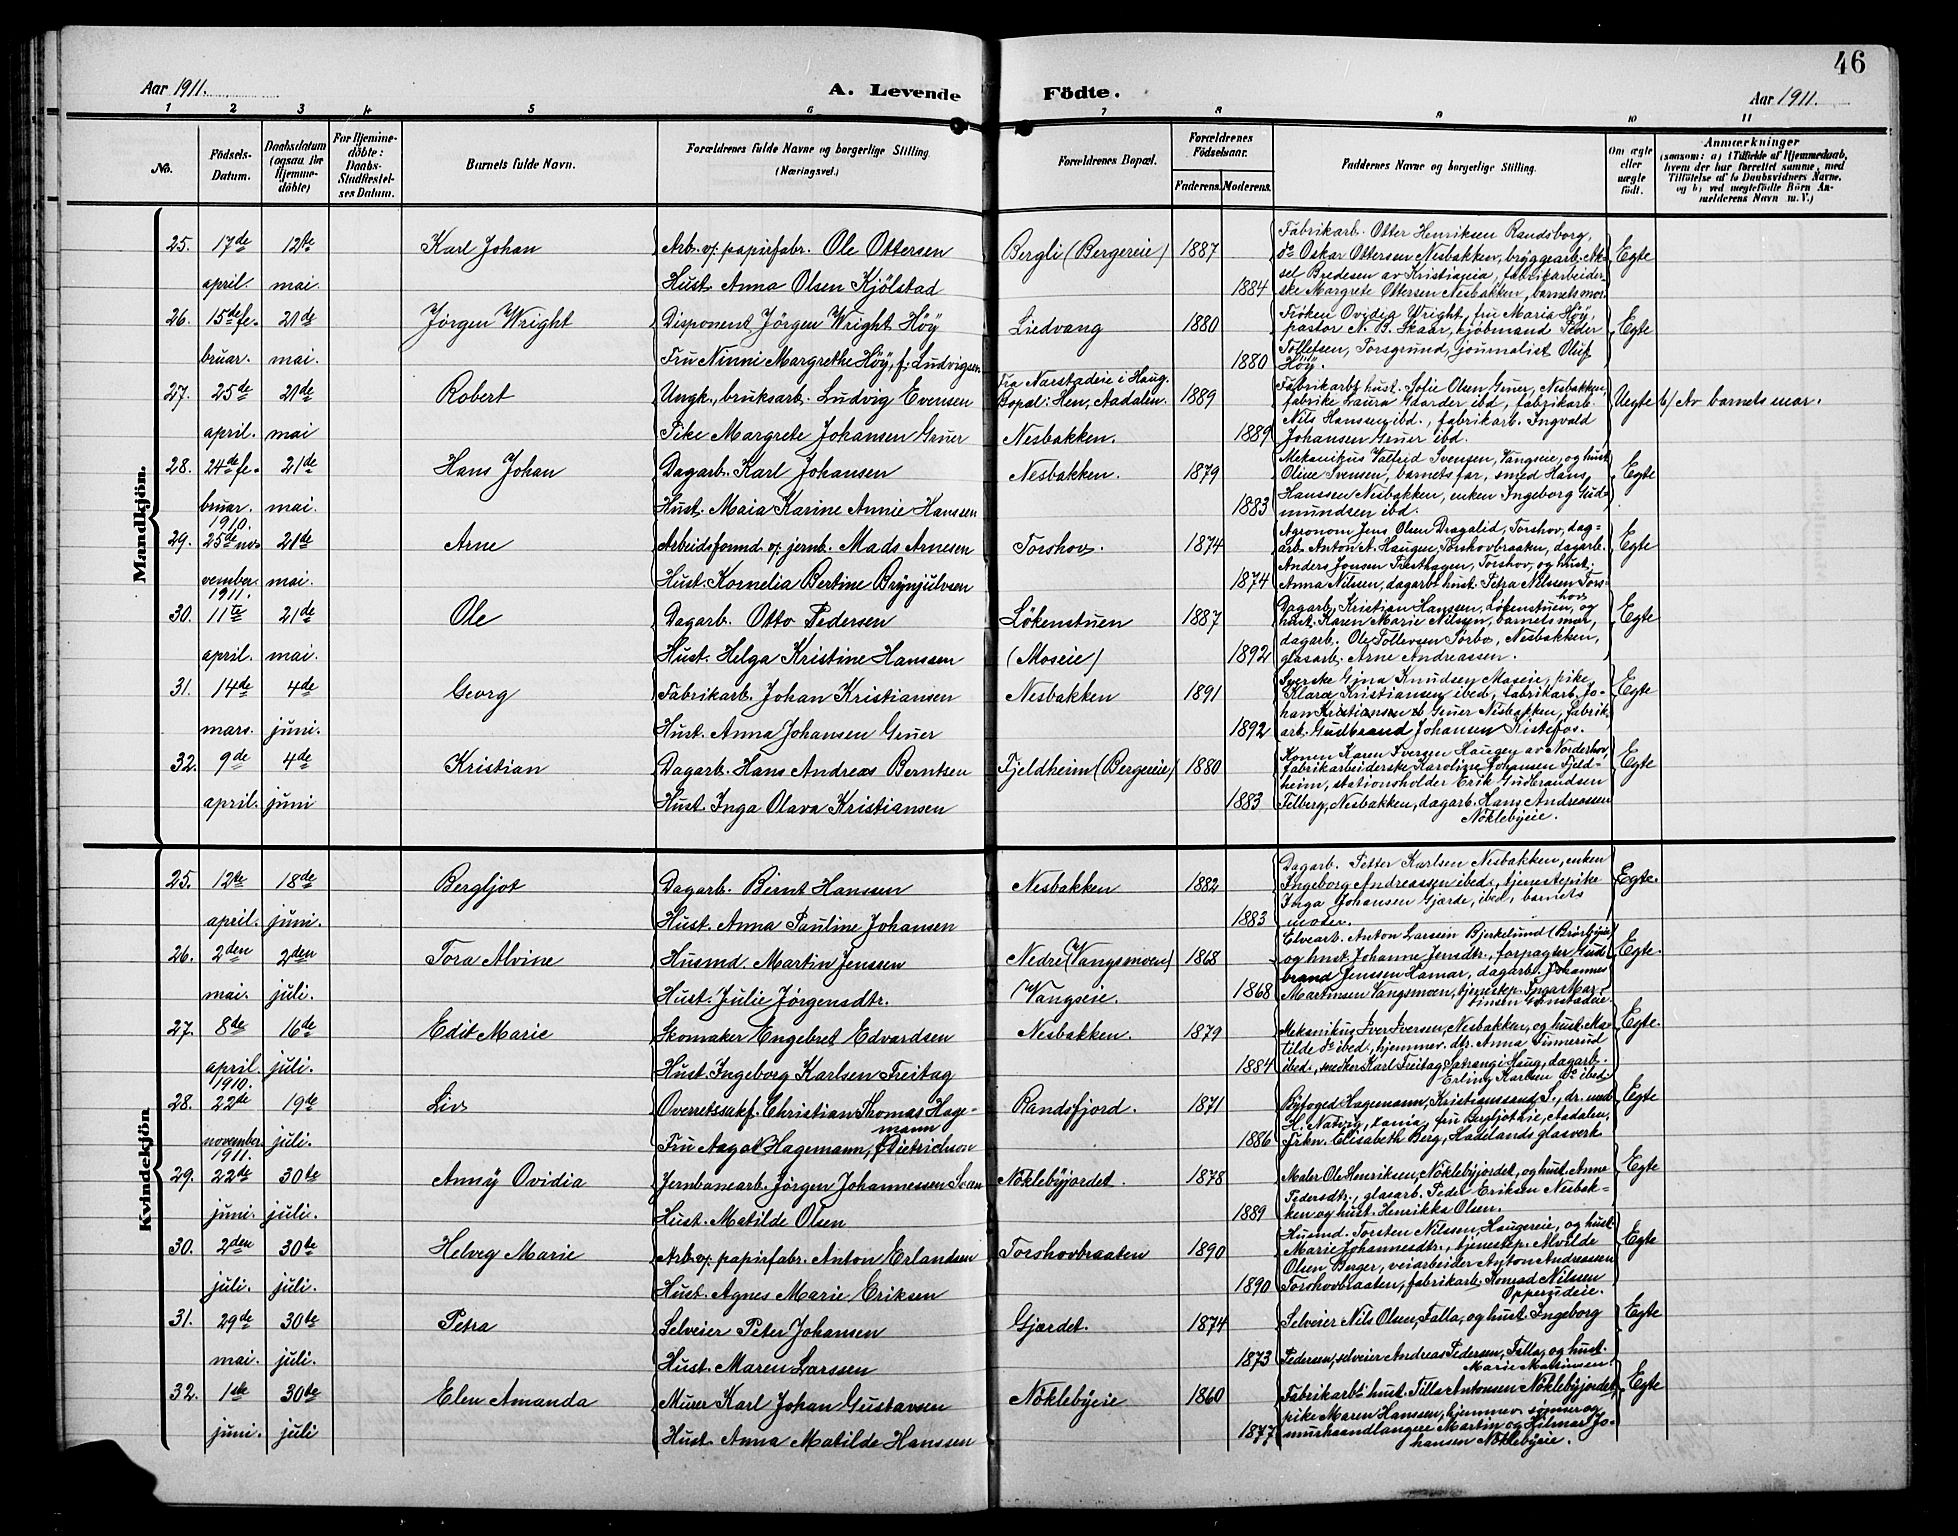 46
Aar 1911. A. Levende Födte. Aar 1911.
1 2 3 4 5 6 7 8 9 10 11
No. Födsels-Datum. Daabsdatum (ogsaa for Hjemmedöbte) For Hjemmedöbte: Daabs-Stadfæstelses Datum. Barnets fulde Navn. Forældrenes fulde Navne og borgerlige Stilling (Næringsvei.) Forældrenes Bopæl. Forældrenes Födselsaar. Faderens. Moderens. Faddernes Navne og borgerlige Stilling. Om ægte eller uægte födt. Anmærkninger (saasom: a) i Tilfælde af Hjemmedaab, hvem der har forrettet samme, med Tilföielse af to Daabsvidners Navne, og b) ved uægtefödte Börn Anmelderens Navn m. V.)
Mandkjön.
25. 17de april. 12te mai. Karl Johan
Arb. v. papirfabr. Ole Ottersen
Hust. Anna Olsen Kjölstad
Bergli (Bergereie) 1887 1884
Fabrikarb. Otter Henriksen Randsborg,
do Oskar Ottersen Nesbakken, bryggearb. Ak-
sel Bredesen av Kristiania, fabrikarbeider-
ske Margrete Ottersen Nesbakken, barnets mor.
Egte
26. 15de februar. 21de mai. Jörgen Wright
Disponent Jörgen Wright Höy
Fru Ninni Margrethe Höy, f. Ludvigsen
Liedvang 1880 1880
Fröken Ovidia Wright, fru Maria Höy,
pastor N. B. Skaar, kjöbmand Peder
Tollefsen, Porsgrund, journalist Oluf
Höy.
Egte
27. 25de april. 21de mai Robert
Ungk., bruksarb. Ludvig Evensen
Pike Margrete Johansen Gruer
Fra Narstadeie i Haug.
Bopæl: Hen, Aadalen.
Nesbakken. 1889 1889
Fabrikarbs hust. Sofie Olsen Gruer, Nesbakken,
fabrike Laura Gaarder ibd, fabrikarb.
Nils Hanssen ibd., fabrikarb. Ingvald
Johansen Gruer ibd.
Uegte b) Av barnets mor.
28. 24de februar. 21de mai. Hans Johan
Dagarb. Karl Johansen
Hust. Maia Karine Annie Hanssen
Nesbakken. 1879 1883
Mekanikus Valfrid Svensen, Vangseie, og hust.
Oline Svensen, barnets far, smed Hans
Hanssen Nesbakken, enken Ingeborg Gud-
mundsen ibd.
Egte
29. 1910. 25de november. 21de mai. Arne
Arbeidsformd v. jernb. Mads Arnesen
Hust. Kornelia Bertine Brynjulvsen
Torshov. 1874 1874
Agronom Jens Olsen Dragalid, Torshov, dag-
arb. Anton A. Haugen, Torshovbraaten, dagarb.
Anders Jonsen Præsthagen, Torshov, og hust.
Anna Nilsen, dagarbs hust. Petra Nilsen Tors-
hov
Egte
30. 1911. 11te april. 21de mai. Ole
Dagarb. Otto Pedersen
Hust. Helga Kristine Hanssen
Lökenstuen (Moseie) 1887 1892
Dagarb. Kristian Hanssen, Lökenstuen, og
hust. Karen Marie Nilsen, barnets mor,
dagarb. Ole Tollevsen Sörbo, Nesbakken,
glasarb. Arne Andreassen.
Egte
31. 14de mars. 4de juni. Georg
Fabrikarb. Johan Kristiansen
Hust. Anna Johansen Gruer
Nesbakken 1891 1892
Sverske Gina Knudsen Moseie, pike
Klara Kristiansen ibed, fabrikarb. Jo-
han Kristiansen Gruer Nesbakken, fabrik
arb. Gudbrand Johansen Kistefos.
Egte
32. 9de april. 4de juni Kristian
Dagarb. Hans Andreas Berntsen
Hust. Inga Olava Kristiansen
Fjeldheim (Bergereie) 1880 1883
Konen Karen Iversen Haugen av Norderhov,
fabrikarbeiderske Karoline Johansen Fjeld-
heim, stationsholder Erik Gudbrandsen
Felberg, Nesbakken, dagarb. Hans Andreassen
Nöklebyeie.
Egte
Kvindekjön
25. 12te april. 18de juni. Bergljot
Dagarb. Bernt Hanssen
Hust. Anna Pauline Johansen
Nesbakken 1882 1883
Dagarb. Petter Karlsen Nesbakken, enken
Ingeborg Andreassen ibed., tjenestepike
Inga Johansen Gjærde, ibed, barnets
moder.
Egte.
26. 2den mai. 2den juli. Tora Alvine
Husmd. Martin Jenssen
Hust. Julie Jörgensdtr.
Nedre (Vangsmoen) Vangseie. 1868 1868
Elvearb. Anton Larsen Bjerkelund
og hust Johanne Jensdtr., forpagter Gud-
brand Jenssen Hamar, dagarb. Johannes
Martinsen Vangsmoen, tjenestep. Inga Mar-
tinsen
Egte.
27. 8de april. 16de juli. Edit Marie
Skomaker Engebret Edvardsen
Hust. Ingeborg Karlsen Freitag
Nesbakken. 1879 1884
Mekanikus Iver Iversen, Nesbakken, og hust. Ma-
tilde do ibed., hjemmev. dtr. Anna Finnerud
ibed., snedker Karl Freitag i Haug, dagarb.
Erling Karlsen do ibed.
Egte.
28. 1910. 22de november 19de juli. Liv
Overretssakf. Christian Thomas Hage-
mann
Fru Aagot Hagemann, f. Dietrichson
Randsfjord. 1871 1886
Byfoged Hagemann, Kristianssand S., dr. med.
H. Natvig, fru Bergljot Aadalen,
Frkn. Elisabeth Berg, Hadelands glasverk
Egte
29. 1911. 22de juni. 30te juli. Anny Ovidia
Jernbanearb. Jörgen Johannessen Svan
Hust. Matilde Olsen
Nöklebyjordet. 1878 1889
Maler Ole Henriksen, Nöklebyjordet, og hust. Anne
Pedersdtr., glasarb. Peder Eriksen Nesbak-
ken og hust. Henrikka Olsen.
Egte
30. 2den juli. 30te juli. Helveg Marie
Arb. v. papirfabr. Anton Erlandsen
Hust. Agnes Marie Eriksen
Torshovbraaten 1890 1890
Husmd. Torsten Nilssen, Haugereie, og hust.
Marie Johannesdtr., tjenestep. Alvilde
Olsen Berger, veiarbeider Anton Andreassen
Torshovbraaten, fabrikarb. Konrad Nilssen
Opperudeie.
Egte
31. 29de mai. 30te juli. Petra
Selveier Peter Johansen
Hust. Maren Larssen
Gjærdet. 1874 1873
Selveier Nils Olsen, Falla, og hust Ingeborg
Pedersen, selveier Andreas Pedersen, Falla, og hust.
Marie Martinsen.
Egte
32. 1ste juni. 30te juli Elen Amanda
Murer Karl Johan Gustavsen
Hust. Anna Matilde Hanssen
Nöklebyeie 1860 1877
Fabrikarbs hust. Tilla Antonsen Nöklebyjordet,
pike Maren Hanssen, hjemmev. sönner og
murhaandlangere Martin og Hilmar Jo-
hansen Nöklebyeie.
Egte